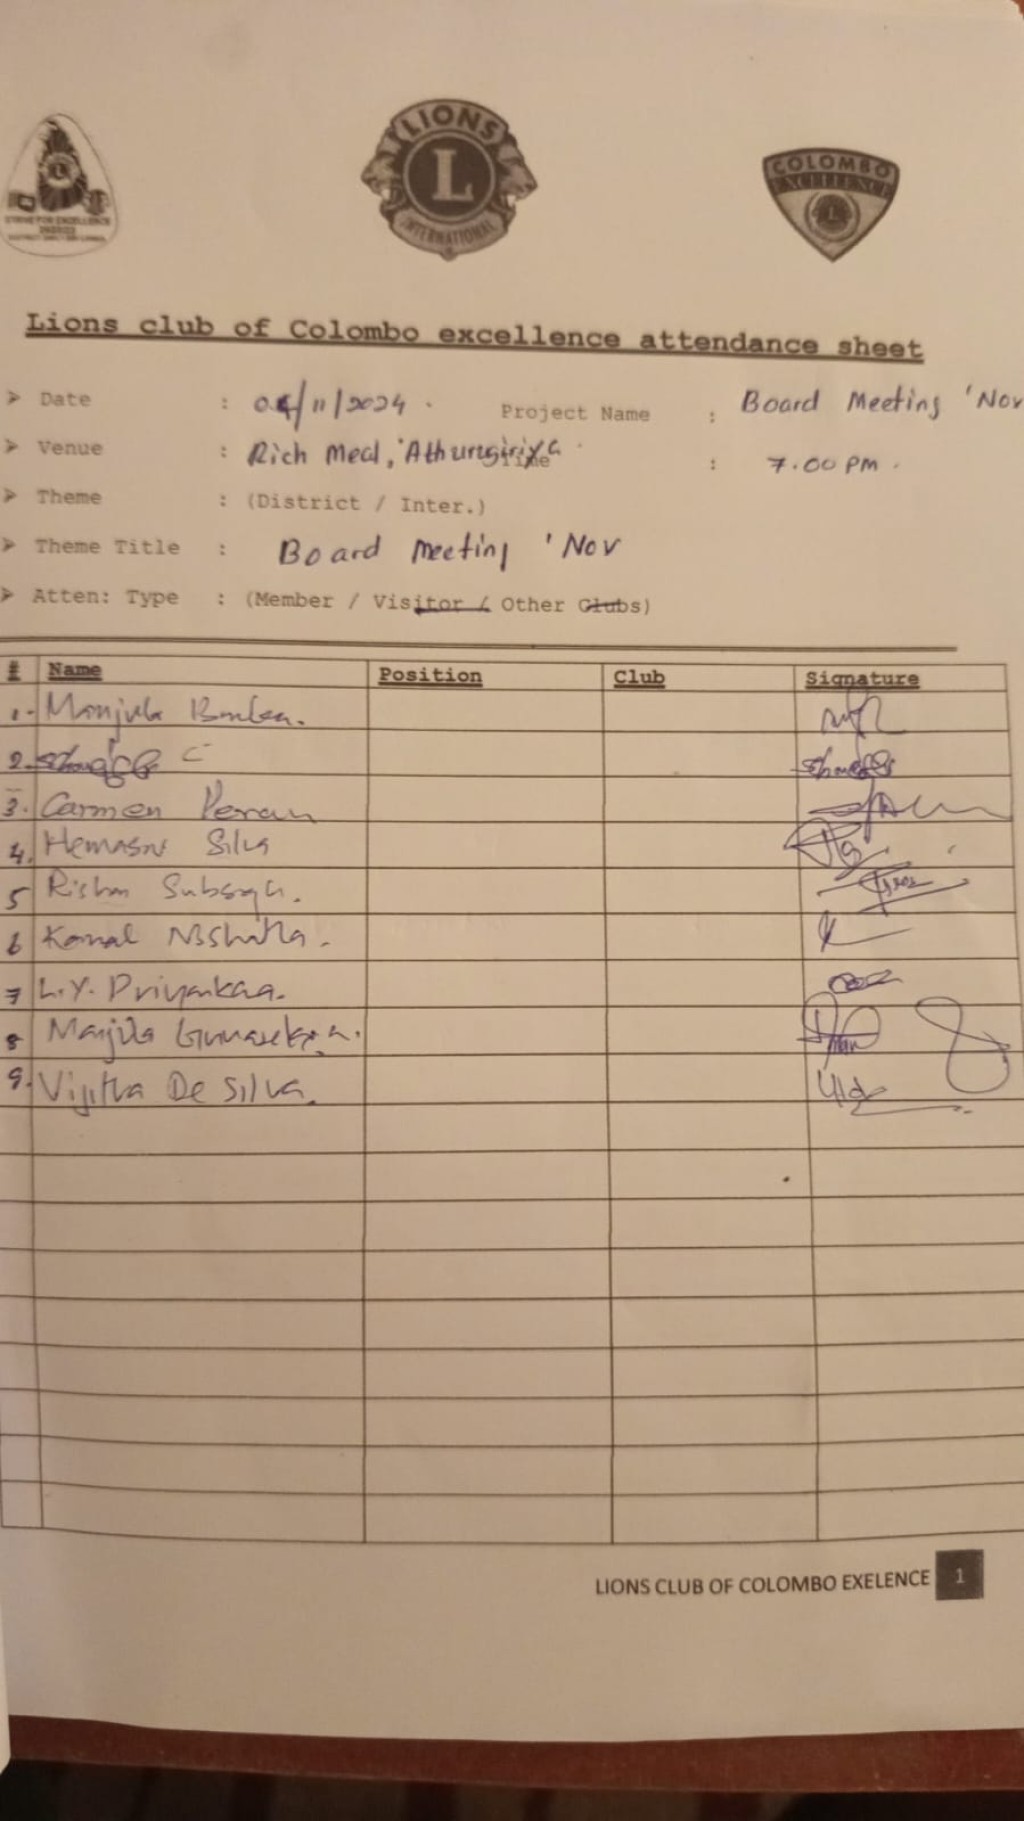 LIONS
L
INTERNATIONAL
COLOMBO
EXCELLENCE
STRIVE FOR EXCELLENCE
Lions club of Colombo excellence attendance sheet
➤ Date : 04/11/2024 . Project Name : Board Meeting 'Nov
➤ Venue : Rich Meal, Athurugiriya. Time : 7.00 PM .
➤ Theme : (District / Inter.)
➤ Theme Title : Board Meeting 'Nov
➤ Atten: Type : (Member / Visitor / Other Clubs)
# Name Position Club Signature
1. Manjula
2.
3. Carmen
4. Silva
5
6 Kamal
7 L.Y. Priyankaa.
8 Manjula
9. Vijitha De Silva.
LIONS CLUB OF COLOMBO EXELENCE 1